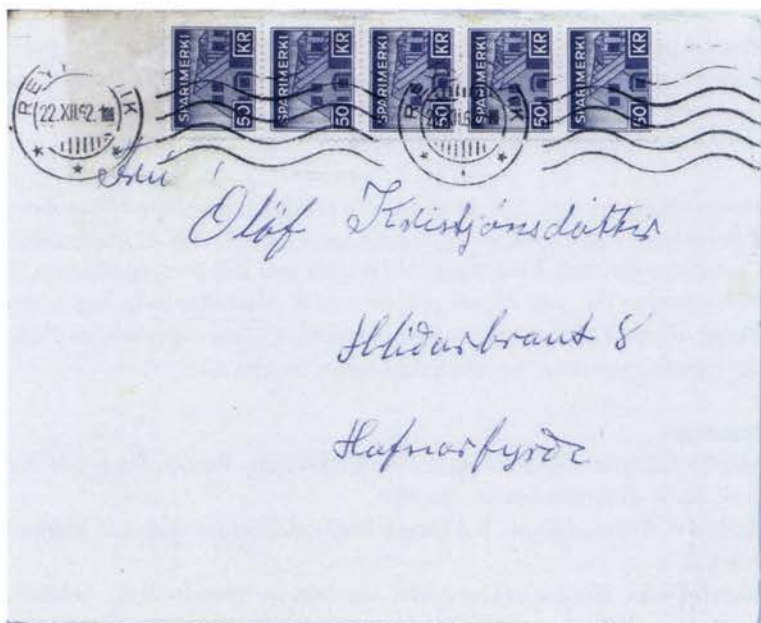 SPARIMERKI 50 KR SPARIMERKI 50 KR SPARIMERKI 50 KR SPARIMERKI 50 KR SPARIMERKI 50 KR
22.XII.62
Frú
Ólöf Kristjónsdóttir
Hlíðarbraut 8
Hafnarfyrði